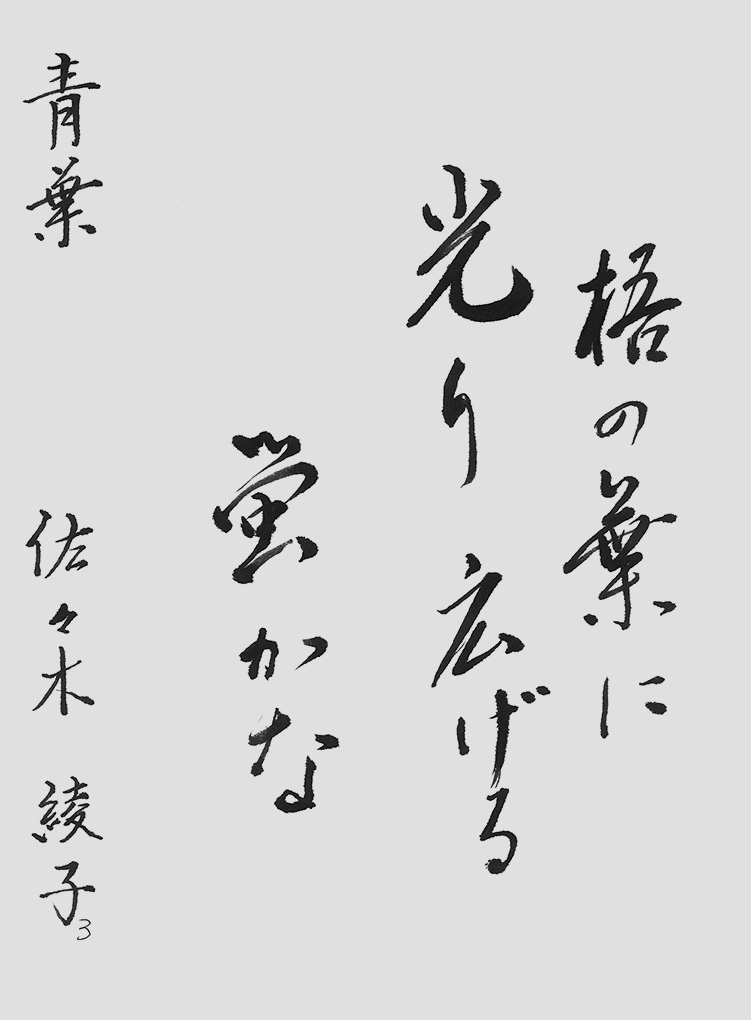 梧の葉に
光り広げる
蛍かな
青葉 佐々木 綾子
3